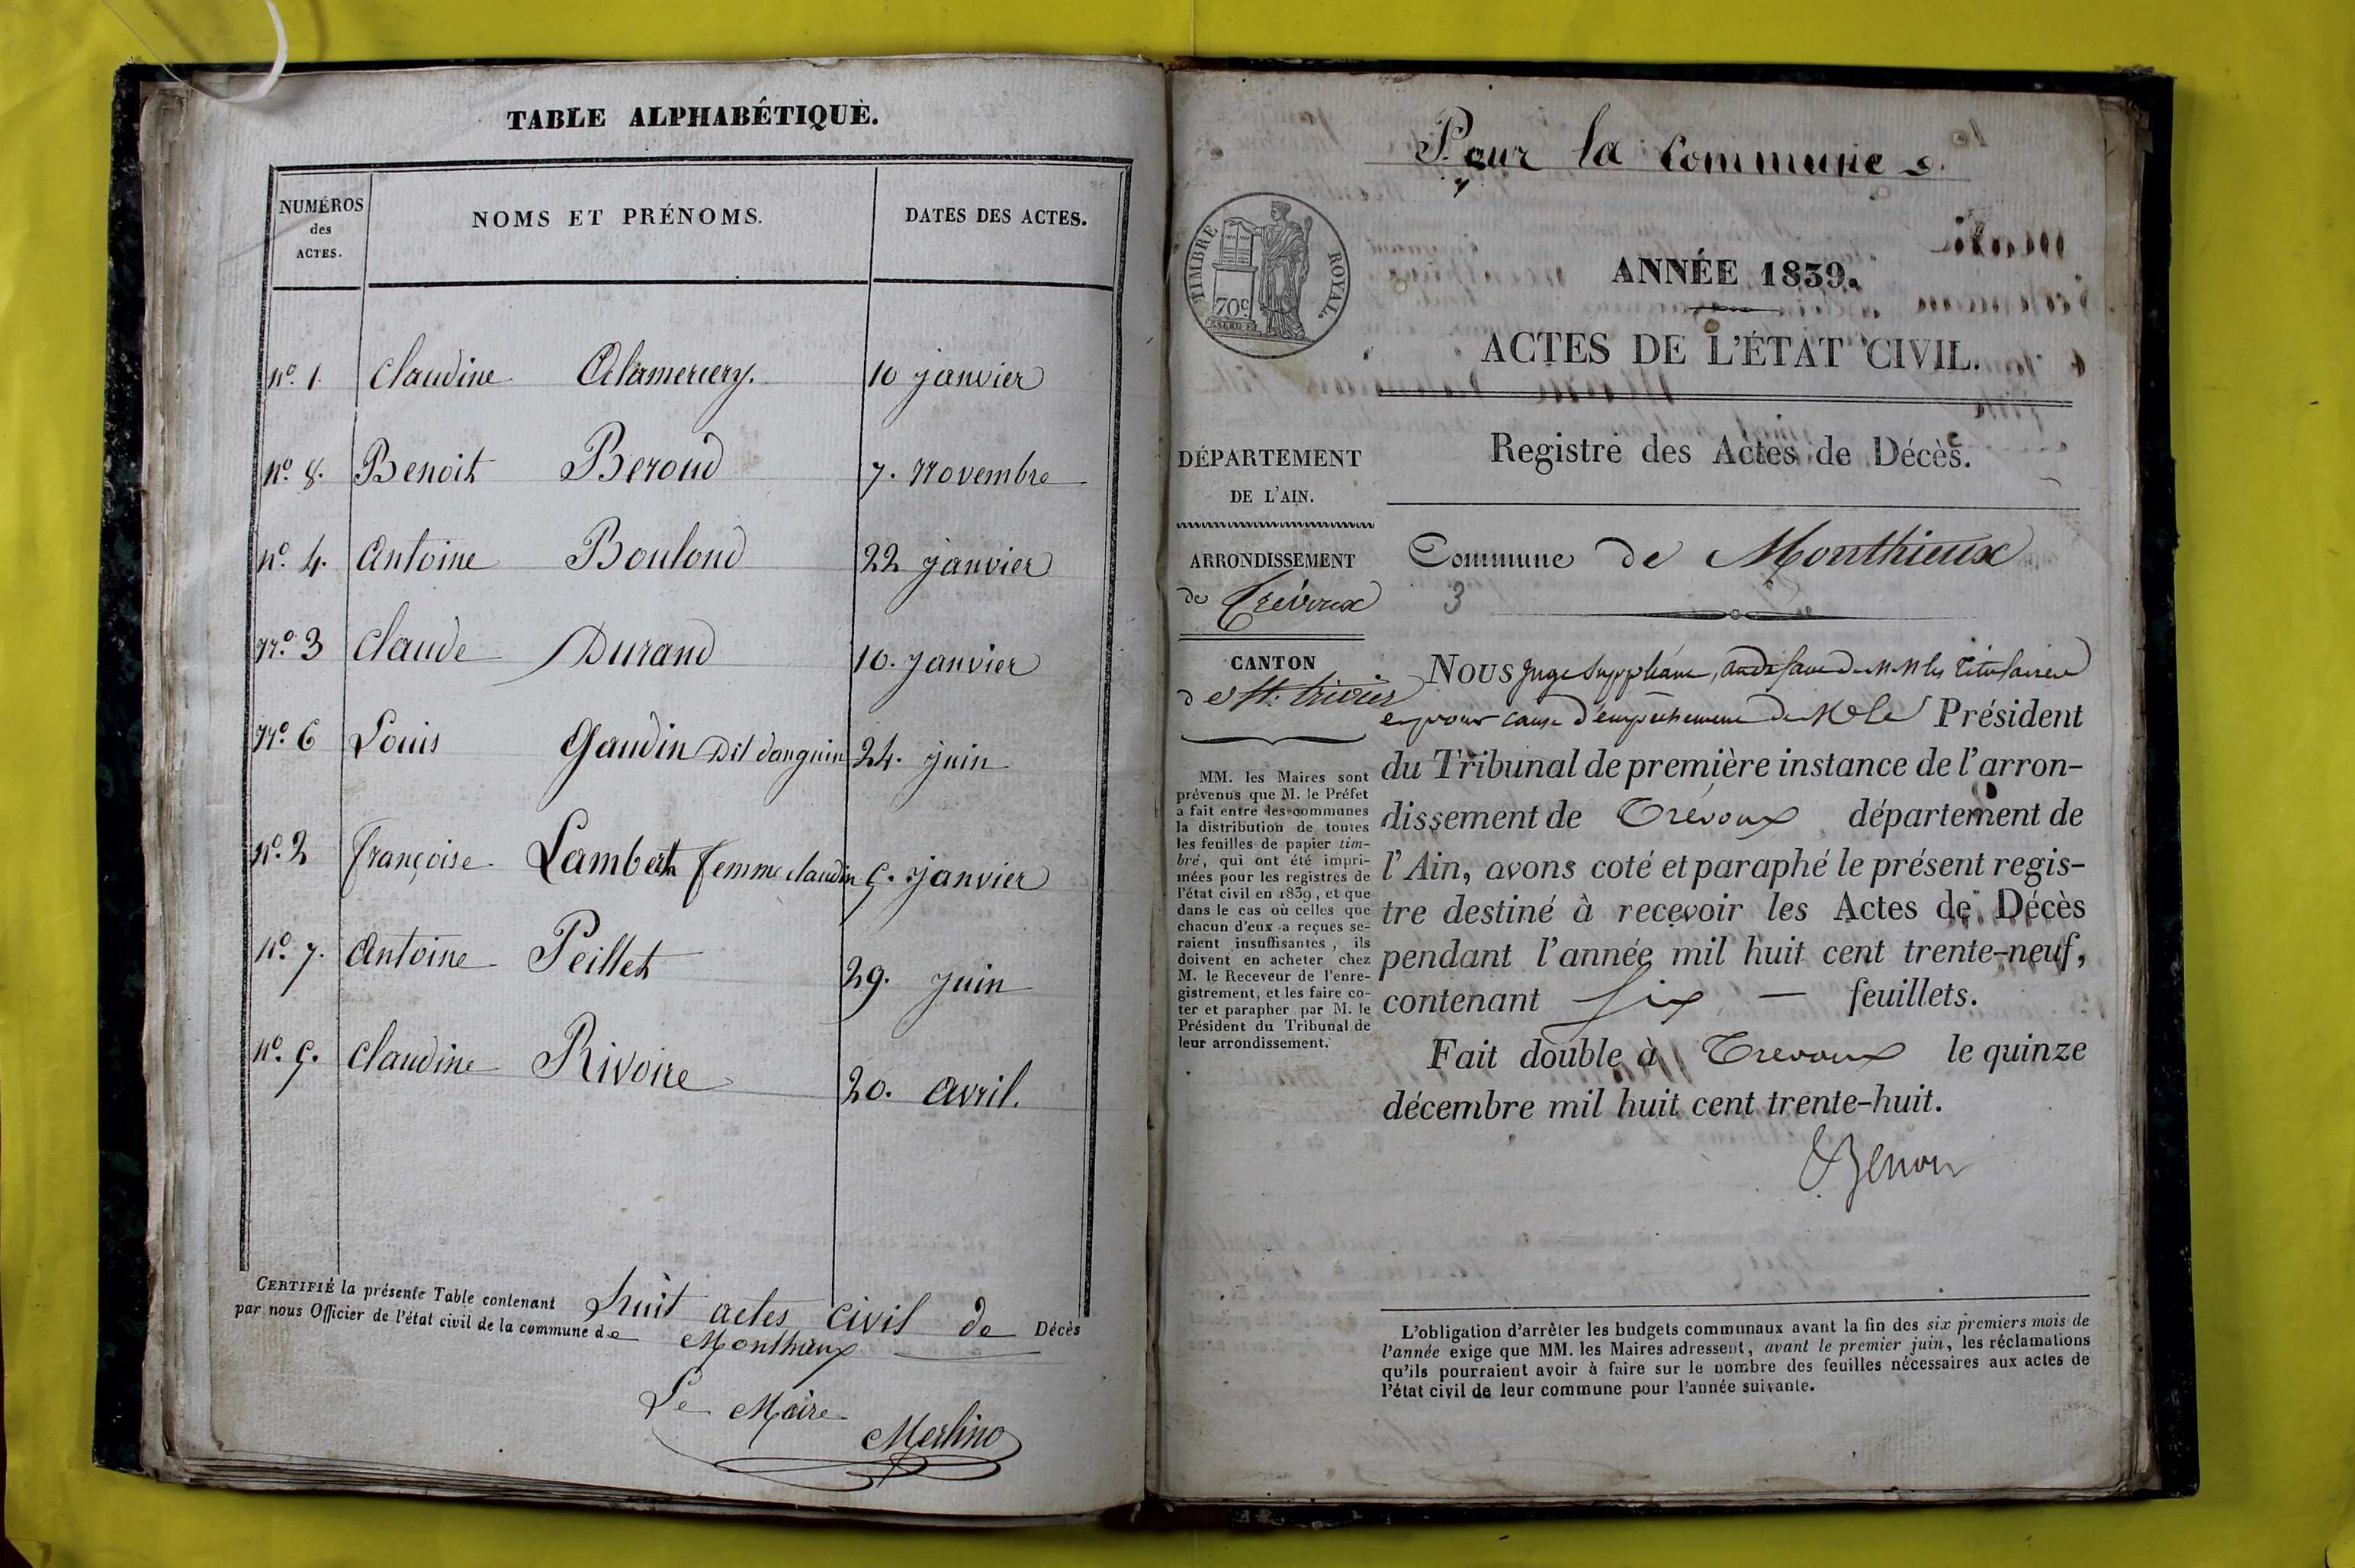 TABLE ALPHABÉTIQUE.
NUMÉROS des ACTES. NOMS ET PRÉNOMS. DATES DES ACTES.
n.º 1. Claudine Alamercery. 10 janvier
n.º 8. Benoit Beroud 7. Novembre
n.º 4. Antoine Boulond 22 janvier
N.º 3 Claude Durand 10. janvier
N.º 6 Louis Gaudin Dit danguin 24. juin
n.º 2 françoise Lambert femme claudin 5. janvier
n.º 7. Antoine Peillet 29. juin
n.º 5. Claudine Rivoire 20. avril.
CERTIFIÉ la présente Table contenant huit actes civil de Décès
par nous Officier de l'état civil de la commune de Monthieux
Le Maire
Merlino
Pour la Commune
TIMBRE ROYAL.
70c
ANNÉE 1839.
ACTES DE L'ÉTAT CIVIL.
Registre des Actes de Décès.
DÉPARTEMENT
DE L'AIN.
ARRONDISSEMENT
de Trévoux
CANTON
de St. trivier
MM. les Maires sont
prévenus que M. le Préfet
a fait entre les communes
la distribution de toutes
les feuilles de papier tim-
bré, qui ont été impri-
mées pour les registres de
l'état civil en 1839, et que
dans le cas où celles que
chacun d'eux a reçues se-
raient insuffisantes, ils
doivent en acheter chez
M. le Receveur de l'enre-
gistrement, et les faire co-
ter et parapher par M. le
Président du Tribunal de
leur arrondissement.
Commune de Monthieux
3
NOUS juge Suppléant, de MM les titulaires
et pour cause d'empêchement de M le Président
du Tribunal de première instance de l'arron-
dissement de Trévoux département de
l'Ain, avons coté et paraphé le présent regis-
tre destiné à recevoir les Actes de Décès
pendant l'année mil huit cent trente-neuf,
contenant six — feuillets.
Fait double à Trevoux le quinze
décembre mil huit cent trente-huit.
L'obligation d'arrêter les budgets communaux avant la fin des six premiers mois de
l'année exige que MM. les Maires adressent, avant le premier juin, les réclamations
qu'ils pourraient avoir à faire sur le nombre des feuilles nécessaires aux actes de
l'état civil de leur commune pour l'année suivante.